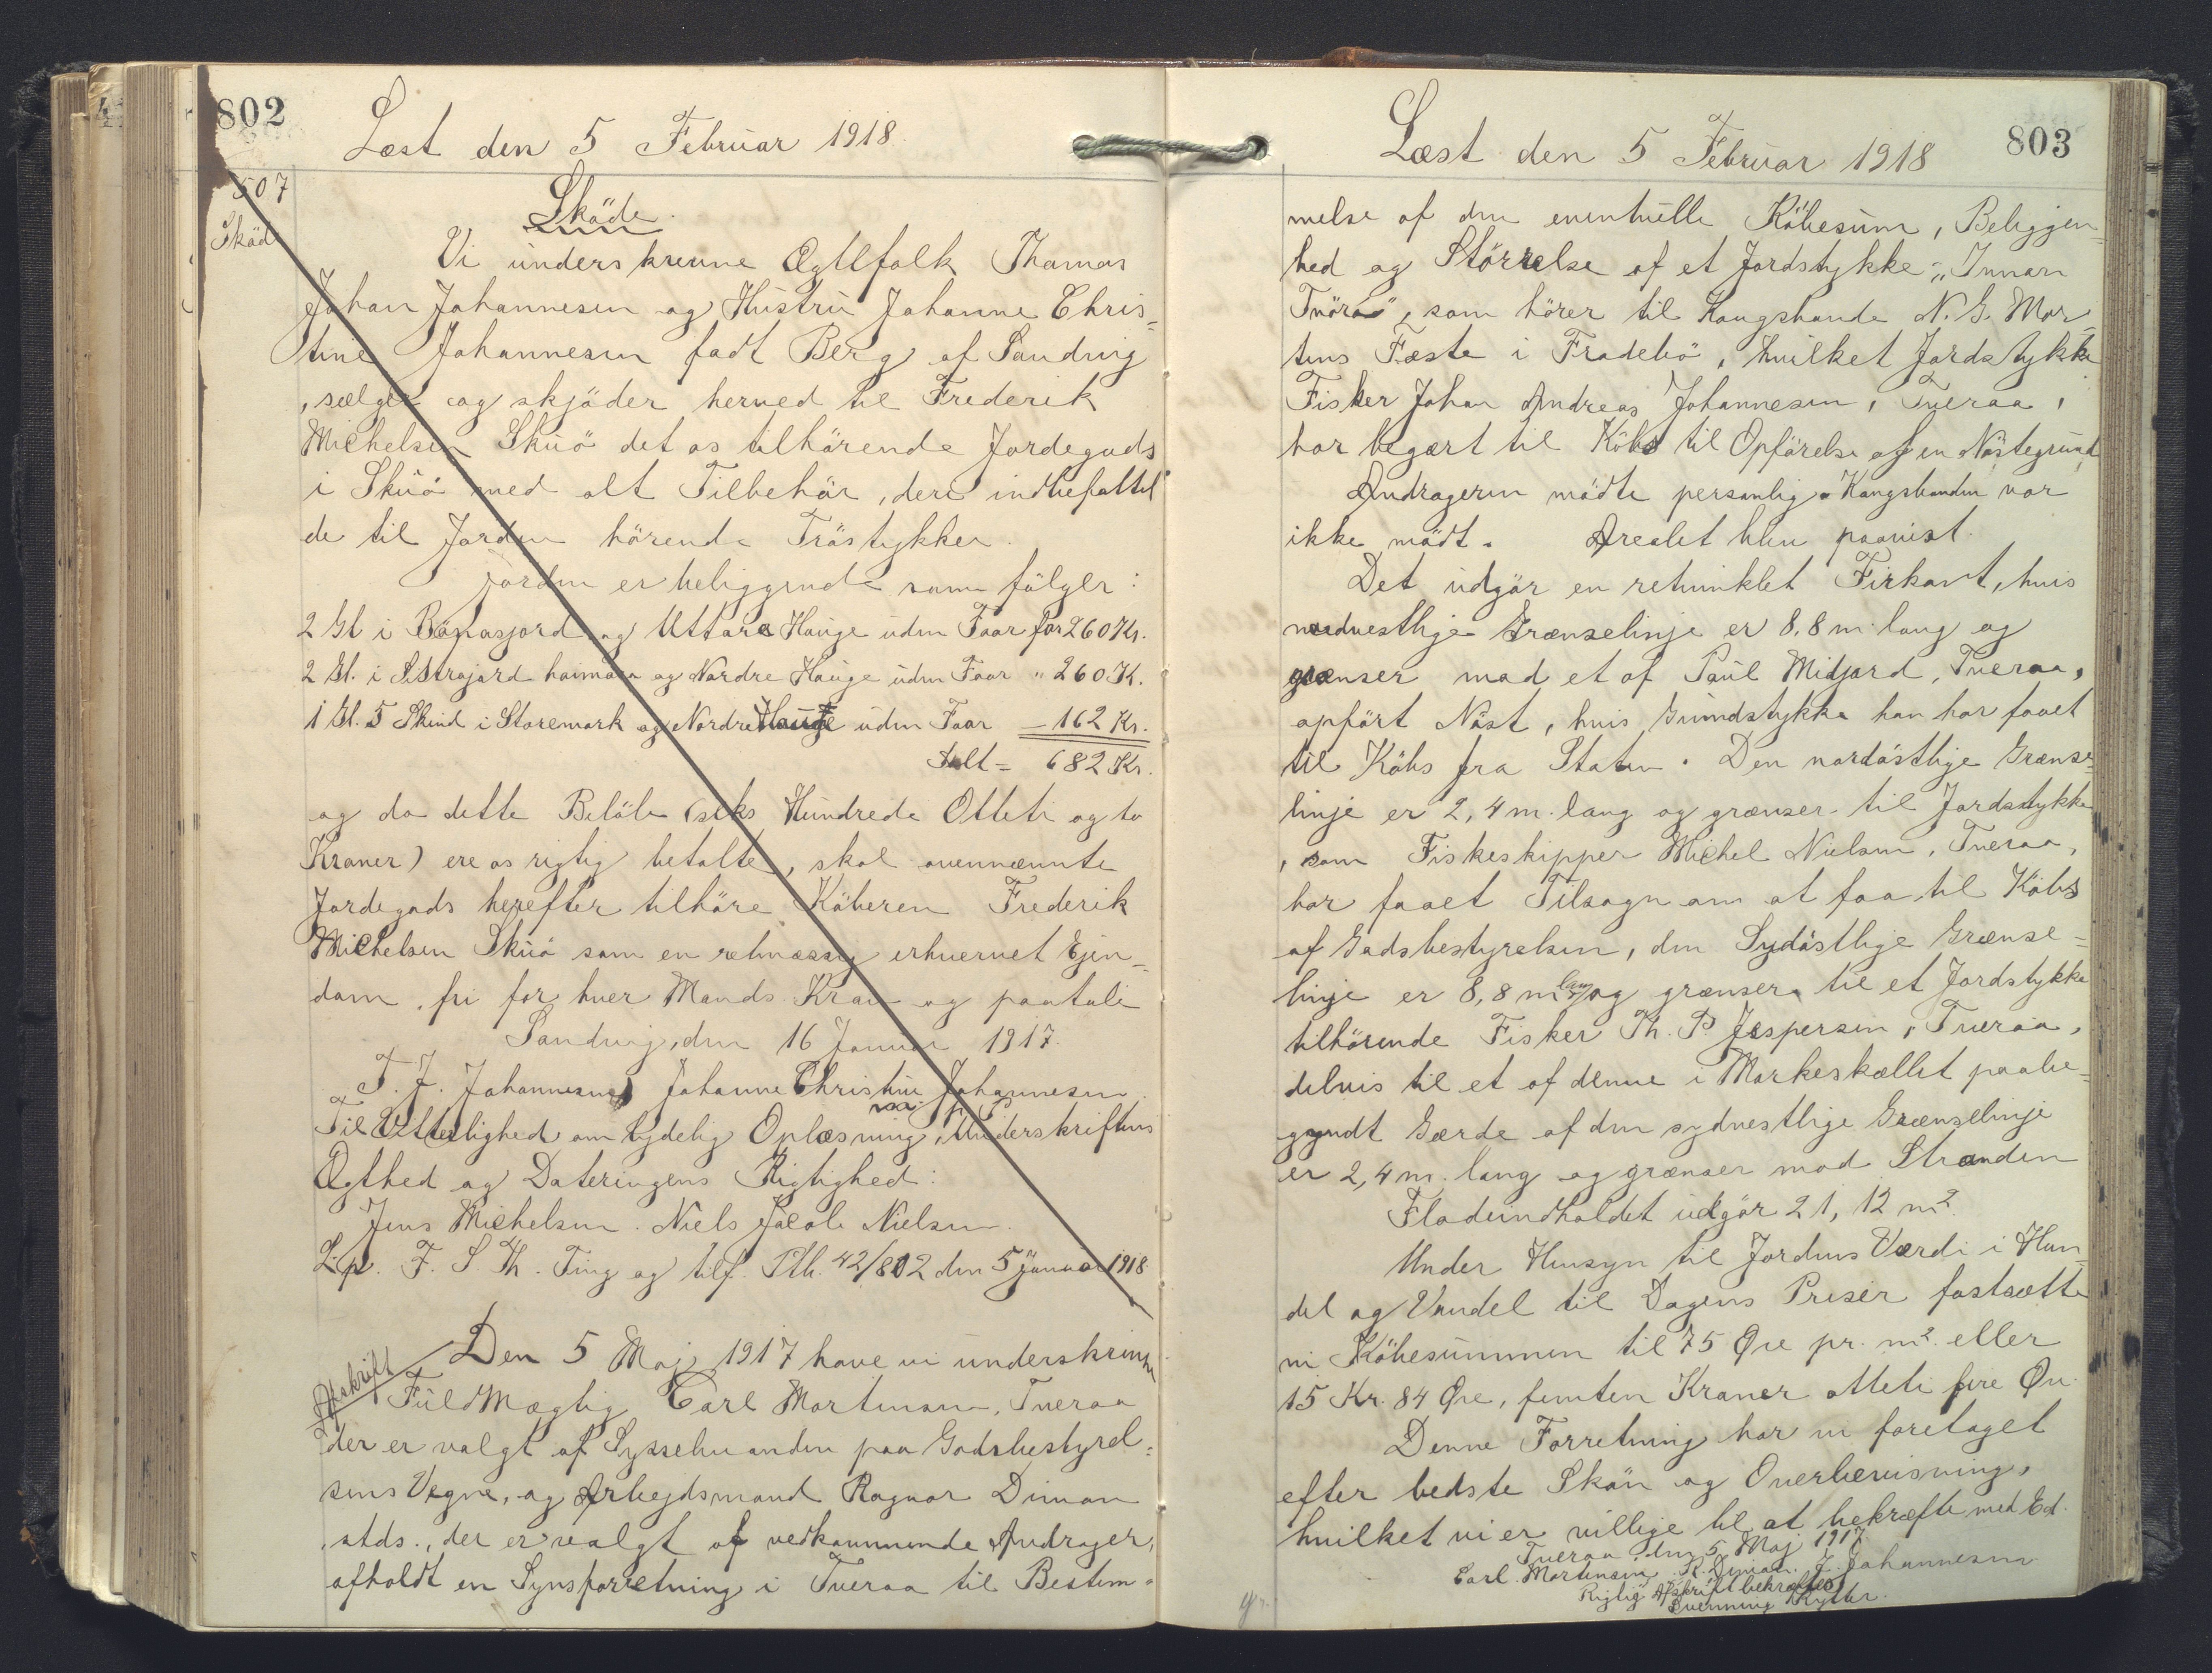 802
Læst den 5 Februar 1918.
507
Skøde
Skøde.
Vi underskrevne Ægtefolk Thomas
Johan Johannesen og Hustru Johanne Chris=
tine Johannesen født Berg af Sandvig
, sælger og skjøder herved til Frederik
Michelsen Skuø det os tilhørende Jordegods
i Skuø med alt Tilbehør, deri indbefattet
de til Jorden hørende Trøstykker.
Jorden er beliggende som følger:
2 Gl i Bønasjord og Uttara Hauge uden Faar for 260 Kr.
2 Gl. i Sistrajord haimara og Nordre Hauge uden Faar " 260 K.
1 Gl. 5 Skind i Storemark og Nordre Hauge uden Faar — 162 Kr.
Ialt = 682 Kr.
og da dette Beløb (seks Hundrede Otteti og to
Kroner) ere os rigtig betalte, skal ovennævnte
Jordegods herefter tilhøre Køberen Frederik
Michelsen Skuø som en retmæssig erhvervet Ejen=
dom, fri for hver Mands Krav og paatale
Sandvig, den 16 Januar 1917.
T. J. Johannesen Johanne Christine Johannesen
m. p. P.
Til Vitterlighed om tydelig Oplæsning, Underskriftens
Ægthed og Dateringens Rigtighed:
Jens Michelsen. Niels Jacob Nielsen.
L. p. F. S. Th. Ting og tilf. Ptb. 42/802 den 5 Januar 1918
Afskrift
Den 5 Maj 1917 have vi underskrevne
Fuldmægtig Carl Mortensen, Tveraa
der er valgt af Sysselmanden paa Godsbestyrel=
sens Vegne, og Arbejdsmand Ragnar Dimon
stds., der er valgt af vedkommende Andrager,
afholdt en Synsforretning i Tveraa til Bestem=
803
Læst den 5 Februar 1918
melse af den eventuelle Købesum, Beliggen=
hed og Størrelse af et Jordstykke „Innan
Tvöraá", som hører til Kongsbonde N. G. Mor
tens Fæste i Frodebø, hvilket Jordstykke
Fisker Johan Andreas Johannesen, Tveraa,
har begært til Købs til Opførelse af en Nøstegrund
Andrageren mødte personlig. Kongsbonden var
ikke mødt. Arealet blev paavist.
Det udgør en retvinklet Firkant, hvis
nordvestlige Grænselinje er 8,8 m. lang og
grænser mod et af Poul Midjord, Tveraa,
opført Nøst, hvis Grundstykke han har faaet
til Købs fra Staten. Den nordøstlige Grænse=
linje er 2,4 m. lang og grænser til Jordstykke
, som Fiskeskipper Michel Nielsen, Tveraa,
har faaet Tilsagn om at faa til Købs
af Godsbestyrelsen, den Sydøstlige Grænse=
linje er 8,8 m lang og grænser til et Jordstykke
tilhørende Fisker Th. P. Jespersen, Tveraa,
delvis til et af denne i Markeskellet paabe=
gyndt Gærde af den sydvestlige Grænselinje
er 2,4 m. lang og grænser mod Stranden
Fladeindholdet udgør 21,12 m².
Under Hensyn til Jordens Værdi i Han
del og Vandel til Dagens Priser fastsætte
vi Købesummen til 75 Øre pr. m² eller
15 Kr. 84 Øre, femten Kroner otteti fire Øre.
Denne Forretning har vi foretaget
efter bedste Skøn og Overbevisning,
hvilket vi er villige til at bekræfte med Ed.
Tveraa den 5 Maj 1917
Carl Mortensen. R. Dimon. J. Johannesen.
Rigtig Afskrift bekræftes
Svenning Rytter.